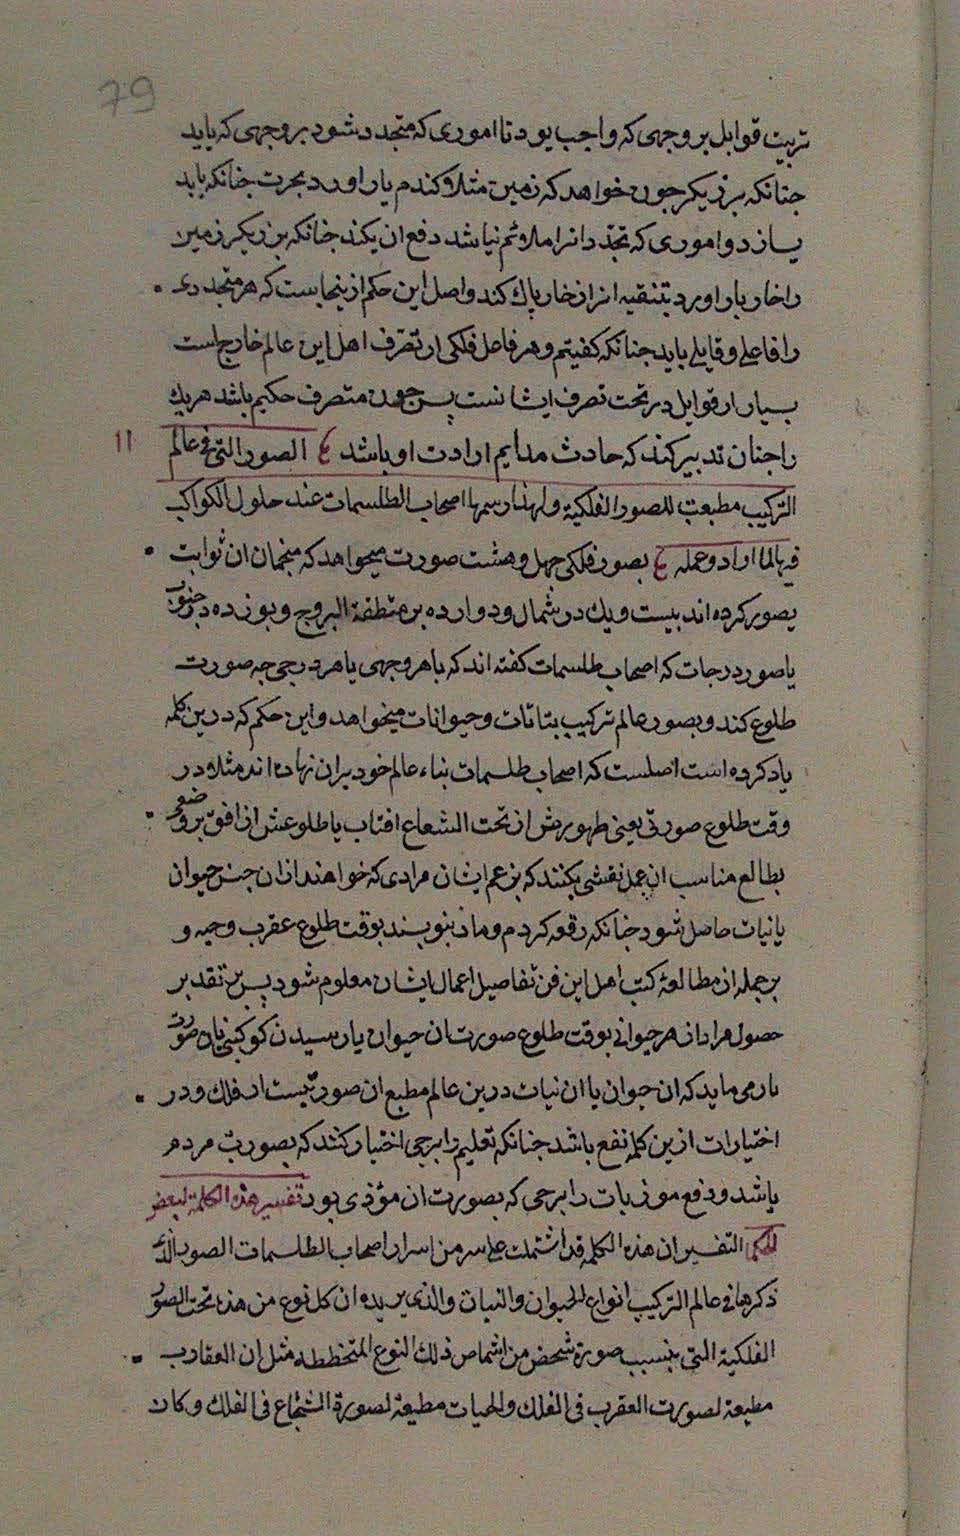 79
تربیت قوابل بر وجهی که واجب بود تا اموری که متجدد شود بر وجهی که باید
جنانکه برزیکر جون خواهد که زمین مثلا کندم بار اورد بحرت جنانکه باید
بسازد و اموری که تجدد انرا ملائم نباشد دفع ان بکند جنانکه برزیکر زمین
را خار بار اورد بتنقیه انرا از خار پاک کند و اصل این حکم از ینجاست که هر متجددی
را فاعلی و قابلی باید جنانکه کفیتم و هر فاعل فلکی از تصرف اهل این عالم خارج است
بسیار از قوابل در تحت تصرف ایشانست پس جون متصرف حکیم باشد هریک
را جنان تدبیر کند که حادث ملایم ارادت او باشد ع الصور التی فی عالم
11
الترکیب مطیعة للصور الفلکیة ولهذا رسمها اصحاب الطلسمات عند حلول الکواکب
فیها لما اراد وعمله ع بصور فلکی جهل و هشت صورت میخواهد که منجمان ان ثوابت
بصور کرده اند بیست و یک در شمال و دوازده بر منطقة البروج و بوزده در جنوب
یا صور درجات که اصحاب طلسمات کفته اند که با هر وجهی یا هر درجی جه صورت
طلوع کند و بصور عالم ترکیب نباتات و حیوانات میخواهد و این حکم که درین کلمه
یاد کرده است اصلست که اصحاب طلسمات بناء عالم خود بران نهاده اند مثلا در
وقت طلوع صورتی یعنی ظهورش از تحت الشعاع افتاب یا طلوعش از افق بر وضعی
بطالع مناسب ان عمل نقشی بکنند که بزعم ایشان مرادی که خواهند ازان جنس حیوان
یا نبات حاصل شود جنانکه رقعه کزدم و مار بنویسند بوقت طلوع عقرب و حیه و
بر جمله از مطالعة کتب اهل این فن تفاصیل اعمال ایشان معلوم شود پس بر تقدیر
حصول مراد از هر حیوانی بوقت طلوع صورت ان حیوان یا رسیدن کوکبی بان صورت
باز می ماید که ان حیوان یا ان نبات درین عالم مطیع ان صورتیست از فلک و در
اختیارات ازین کلمه نفع باشد جنانکه تعلیم را برجی اختیار کنند که بصورت مردم
باشد و دفع موذیات را برجی که بصورت ان مؤذی بود تفسیر هذه الکلمة لبعض
الحکما التفسیر ان هذه الکلمة قد اشتملت علی سر من اسرار اصحاب الطلسمات الصور التی
ذکرها فی عالم الترکیب انواع الحیوان والنبات والذی یریده ان کل نوع من هذه تحت الصور
الفلکیة التی بنسب صورة شخص من اشخاص ذلک النوع المتخططه مثل ان العقارب
مطیعة لصورت العقرب فی الفلک والحیات مطیعة لصورة الشجاع فی الفلک وکان